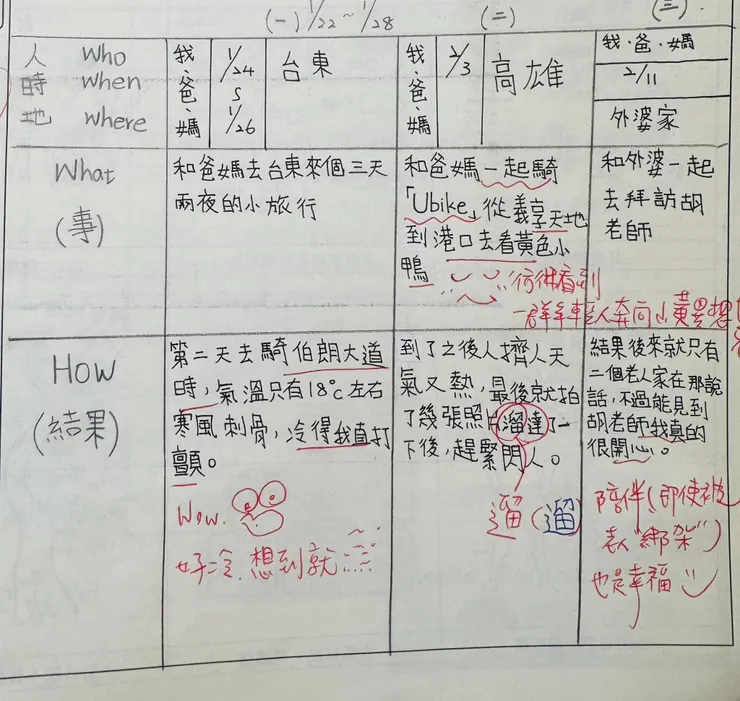 (一) 1/22~1/28
(二)
(三)
人 Who
時 when
地 where
我、爸、媽
1/24
5
1/26
台東
我、爸、媽
2/3
高雄
我、爸、媽
2/11
外婆家
What
(事)
和爸媽去台東來個三天
兩夜的小旅行
和爸媽一起騎
「Ubike」從義享天地
到港口去看黃色小
鴨
彷彿看到
一群
人奔向小黃
和外婆一起
去拜訪胡
老師
How
(結果)
第二天去騎伯朗大道
時,氣溫只有18℃左右
寒風刺骨,冷得我直打
顫。
Wow.
好冷,想到就
到了之後人擠人天
氣又熱,最後就拍
了幾張照片溜達了一
下後,趕緊閃人。
遛(遛)
結果後來就只有
二個老人家在那說
話,不過能見到
胡老師我真的
很開心。
陪伴(即使被
"綁架")
也是幸福